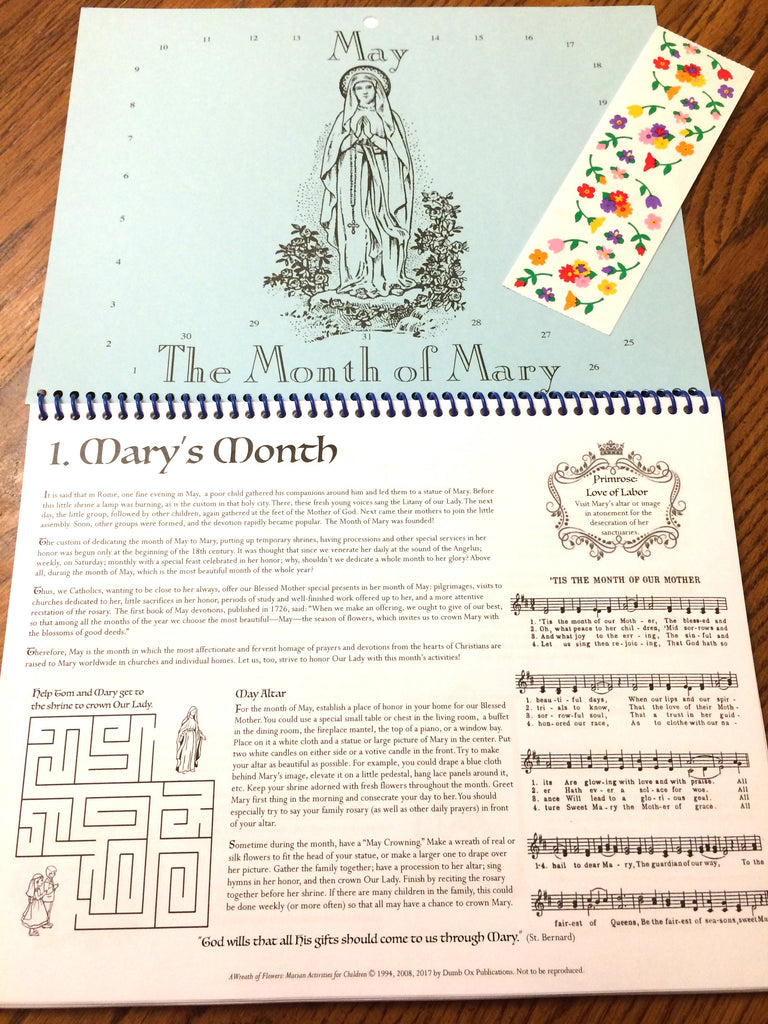 May
10 11 12 13 14 15 16 17
9 18
8 19
7
6
5
4
3 29 28
2 30 31 27 25
1 The Month of Mary 26
1. Mary's Month
It is said that in Rome, one fine evening in May, a poor child gathered his companions around him and led them to a statue of Mary. Before
this little shrine a lamp was burning, as is the custom in that holy city. There, these fresh young voices sang the Litany of our Lady. The next
day, the little group, followed by other children, again gathered at the feet of the Mother of God. Next came their mothers to join the little
assembly. Soon, other groups were formed, and the devotion rapidly became popular. The Month of Mary was founded!
The custom of dedicating the month of May to Mary, putting up temporary shrines, having processions and other special services in her
honor was begun only at the beginning of the 18th century. It was thought that since we venerate her daily at the sound of the Angelus;
weekly, on Saturday; monthly with a special feast celebrated in her honor; why, shouldn't we dedicate a whole month to her glory? Above
all, during the month of May, which is the most beautiful month of the whole year?
Thus, we Catholics, wanting to be close to her always, offer our Blessed Mother special presents in her month of May: pilgrimages, visits to
churches dedicated to her, little sacrifices in her honor, periods of study and well-finished work offered up to her, and a more attentive
recitation of the rosary. The first book of May devotions, published in 1726, said: "When we make an offering, we ought to give of our best,
so that among all the months of the year we choose the most beautiful—May—the season of flowers, which invites us to crown Mary with
the blossoms of good deeds."
Therefore, May is the month in which the most affectionate and fervent homage of prayers and devotions from the hearts of Christians are
raised to Mary worldwide in churches and individual homes. Let us, too, strive to honor Our Lady with this month's activities!
Primrose:
Love of Labor
Visit Mary's altar or image
in atonement for the
desecration of her
sanctuaries.
Help Tom and Mary get to
the shrine to crown Our Lady.
May Altar
For the month of May, establish a place of honor in your home for our Blessed
Mother. You could use a special small table or chest in the living room, a buffet
in the dining room, the fireplace mantel, the top of a piano, or a window bay.
Place on it a white cloth and a statue or large picture of Mary in the center. Put
two white candles on either side or a votive candle in the front. Try to make
your altar as beautiful as possible. For example, you could drape a blue cloth
behind Mary's image, elevate it on a little pedestal, hang lace panels around it,
etc. Keep your shrine adorned with fresh flowers throughout the month. Greet
Mary first thing in the morning and consecrate your day to her. You should
especially try to say your family rosary (as well as other daily prayers) in front
of your altar.
Sometime during the month, have a "May Crowning." Make a wreath of real or
silk flowers to fit the head of your statue, or make a larger one to drape over
her picture. Gather the family together; have a procession to her altar; sing
hymns in her honor, and then crown Our Lady. Finish by reciting the rosary
together before her shrine. If there are many children in the family, this could
be done weekly (or more often) so that all may have a chance to crown Mary.
'TIS THE MONTH OF OUR MOTHER
1. 'Tis the month of our Moth - er, The bless-ed and
2. Oh, what peace to her chil - dren, 'Mid sor-rows and
3. And what joy to the err - ing, The sin - ful and
4. Let us sing then re-joic - ing, That God hath so
1. beau - ti - ful days, When our lips and our spir -
2. tri - als to know, That the love of their Moth -
3. sor - row-ful soul, That a trust in her guid -
4. hon-ored our race, As to clothe with our na -
1. its Are glow-ing with love and with praise. All
2. er Hath ev - er a sol - ace for woe. All
3. ance Will lead to a glo - ri - ous goal. All
4. ture Sweet Ma - ry the Moth-er of grace. All
1-4. hail to dear Ma - ry, The guardian of our way, To the
fair-est of Queens, Be the fair-est of sea-sons, sweet Ma
"God wills that all His gifts should come to us through Mary." (St. Bernard)
A Wreath of Flowers: Marian Activities for Children © 1994, 2008, 2017 by Dumb Ox Publications. Not to be reproduced.